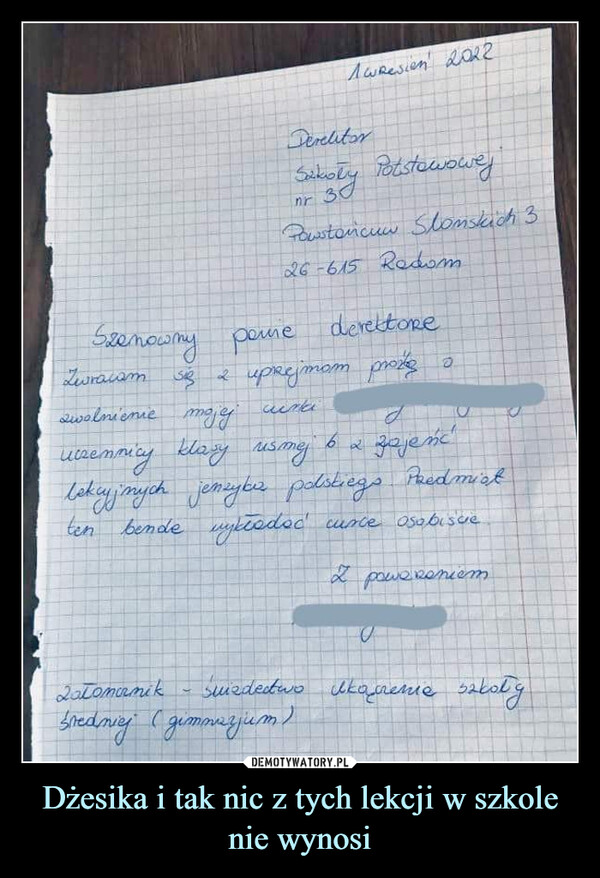 1 wRzesień 2022
Derektor
Szkoły Potstawowej
nr 3
Powstańcuw Slomskich 3
26-615 Radom
Szanowny panie derektoRe
Zwracam się z upRejmom proźbą o
zwolnienie mojej curki
uczennicy klasy usmej b z zajeńć
lekcyjnych jenzyka polskiego PRedmiąt
ten bende wykładać curce osobiście
Z powaRaniem
Załoncznik - świadectwo Ukączenie szkoły
średniej (gimnazjum)
DEMOTYWATORY.PL
Dżesika i tak nic z tych lekcji w szkole
nie wynosi